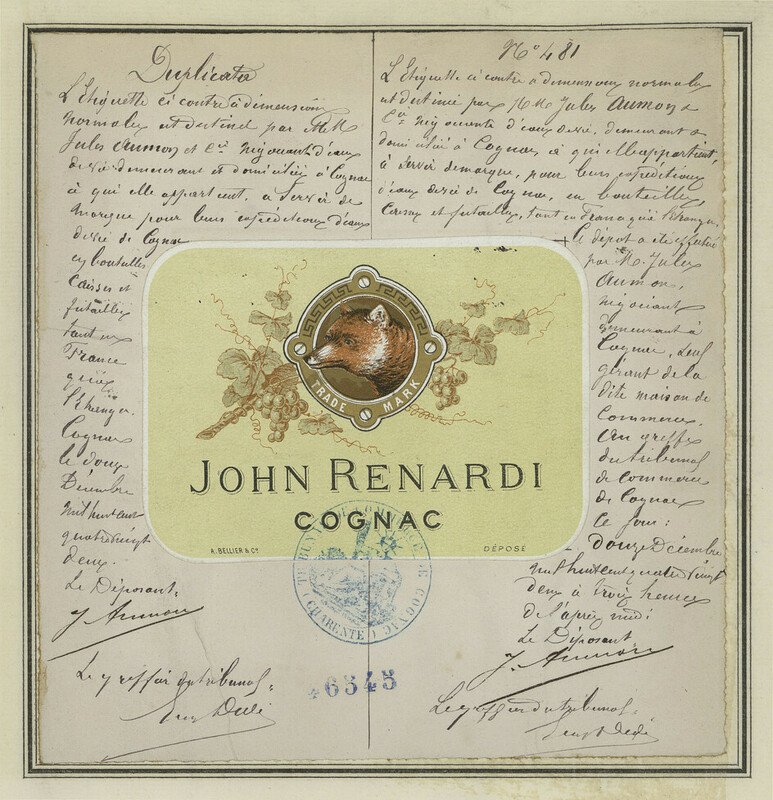 Duplicata
L'Etiquette ci contre à dimensions
normales est destinée par MM
Jules Aumon et Cie négociant d'eaux
de vie demeurant et domiciliés à Cognac
à qui elle appartient, à servir de
marque pour leurs expéditions d'eaux
de vie de Cognac
en bouteilles
caisses et
futailles
tant en
France
qu'à
l'Etranger.
Cognac
le douze
Décembre
mil huit cent
quatre vingt
deux.
Le Déposant,
J. Aumon
Le greffier du tribunal
No 481
L'Etiquette ci contre à dimensions normales
est destinée par MM Jules Aumon &
Cie négociants d'eaux de vie, demeurant &
domiciliés à Cognac, à qui elle appartient,
à servir de marque, pour leurs expéditions
d'eaux de vie de Cognac, en bouteilles,
caisses et futailles, tant en France qu'à l'Etranger.
Le dépot a été effectué
par M. Jules
Aumon,
négociant
demeurant à
Cognac, seul
gérant de la
dite maison de
Commerce.
Au greffe
du tribunal
de commerce
de Cognac
ce jour:
douze Décembre
mil huit cent quatre vingt
deux à trois heures
de l'après midi
Le Déposant
J. Aumon
Le greffier du tribunal
TRADE MARK
JOHN RENARDI
COGNAC
A. BELLIER & Co.
DÉPOSÉ
TRIBUNAL DE COMMERCE DE COGNAC
(CHARENTE)
46545